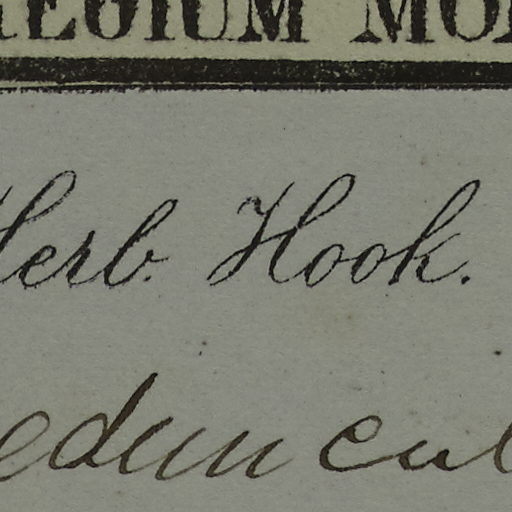 REGIUM MO
Herb. Hook.
eduncul